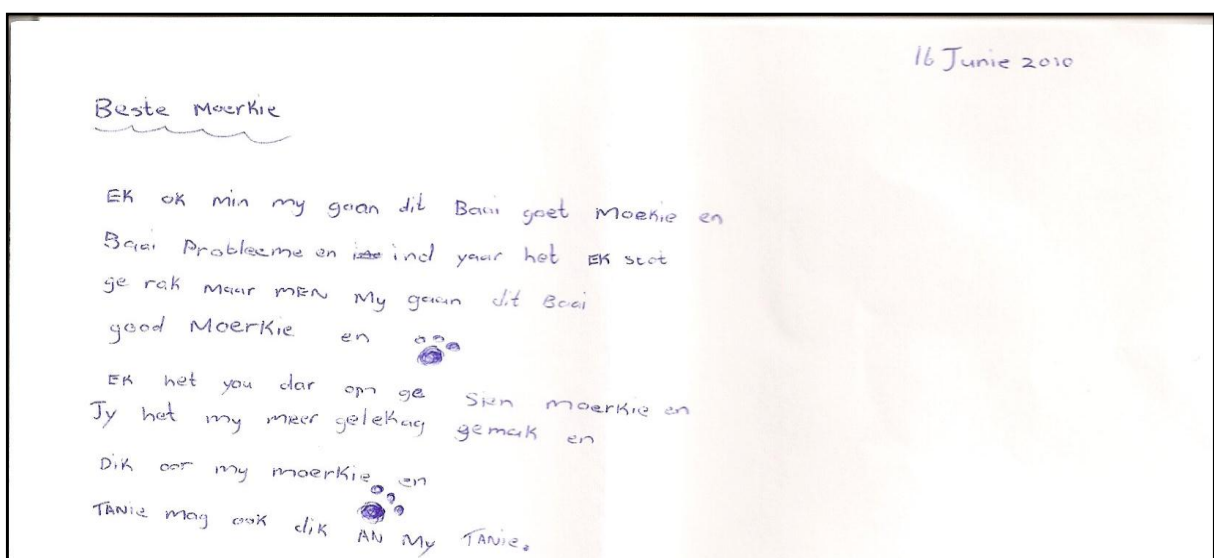 16 Junie 2010
Beste Moerkie
EK ok min my gaan dit Baai goet Moekie en
Baai Probleeme en ind yaar het EK stot
ge rak Maar MEN My gaan dit Baai
good Moerkie en
EK het you dar opn ge Sien moerkie en
Jy het my meer gelekag gemak en
Dik oor my moerkie en
TANie mag ook dik AN My TANie.